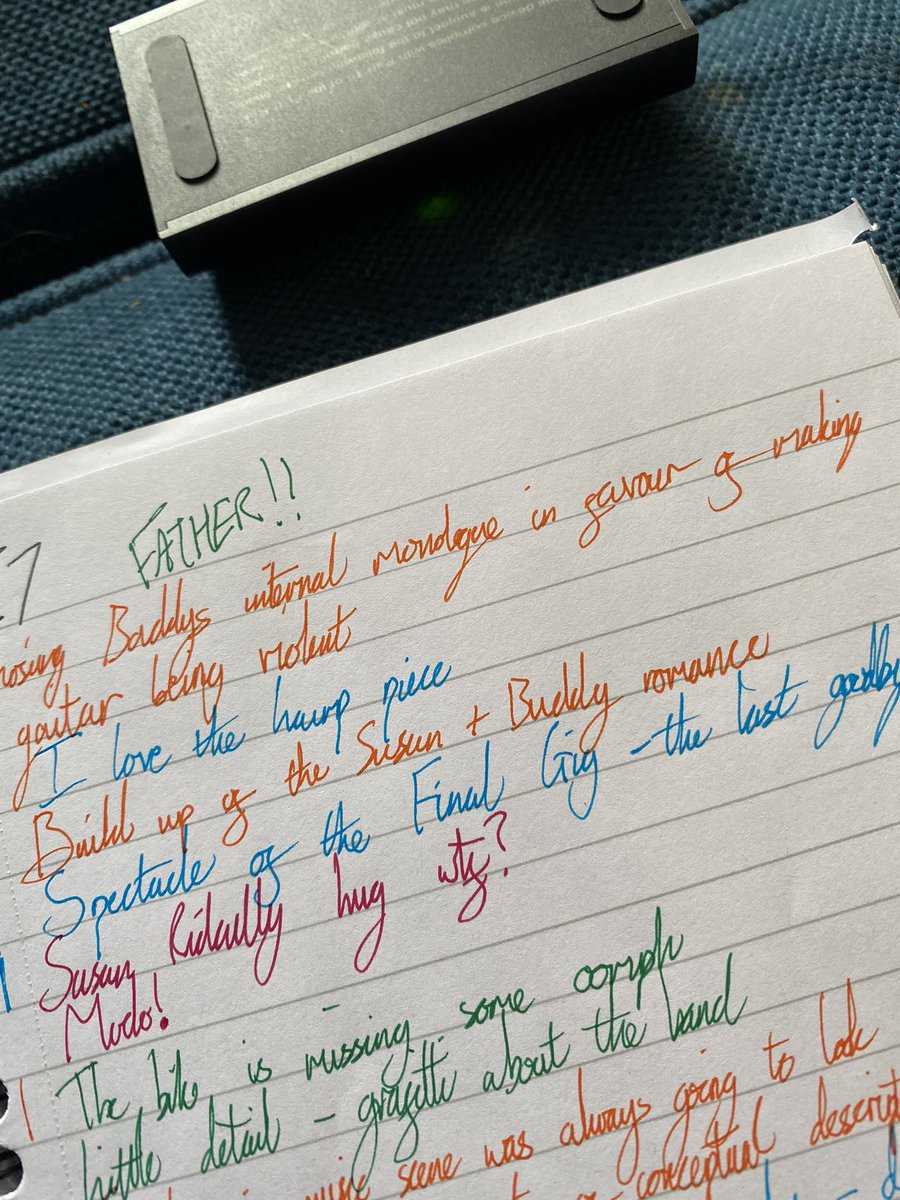 device complies with
FATHER!!
Buddys internal monologue in favour of making
guitar being violent
I love the harp piece
Build up of the Susan + Buddy romance
Spectacle of the Final Gig - the last goodby
Susan Ridcully hug wtf?
Modo!
The bike is missing some oomph
little detail - grafitti about the band
scene was always going to look
conceptual descript